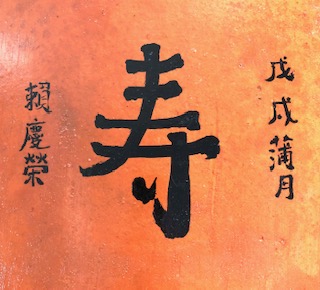 戊戌蒲月
寿
賴慶榮